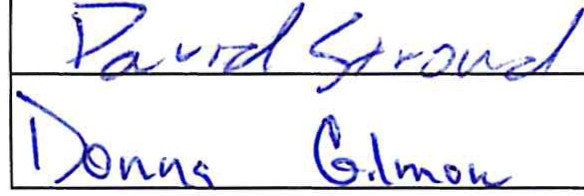 David Stroud
Donna Gilmon